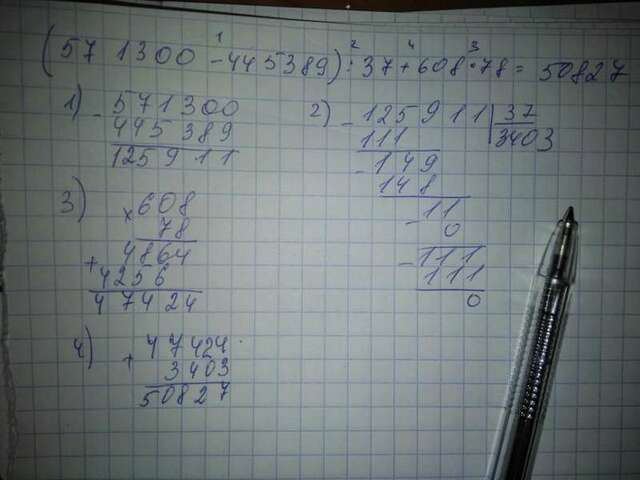 (571300 - 445389) : 37 + 608 · 78 = 50827
1 2 4 3
1) - 571300
445389
125911
2) - 125911 | 37
111 3403
- 149
148
- 11
0
- 111
111
0
3) × 608
78
+ 4864
4256
47424
4) + 47424
3403
50827